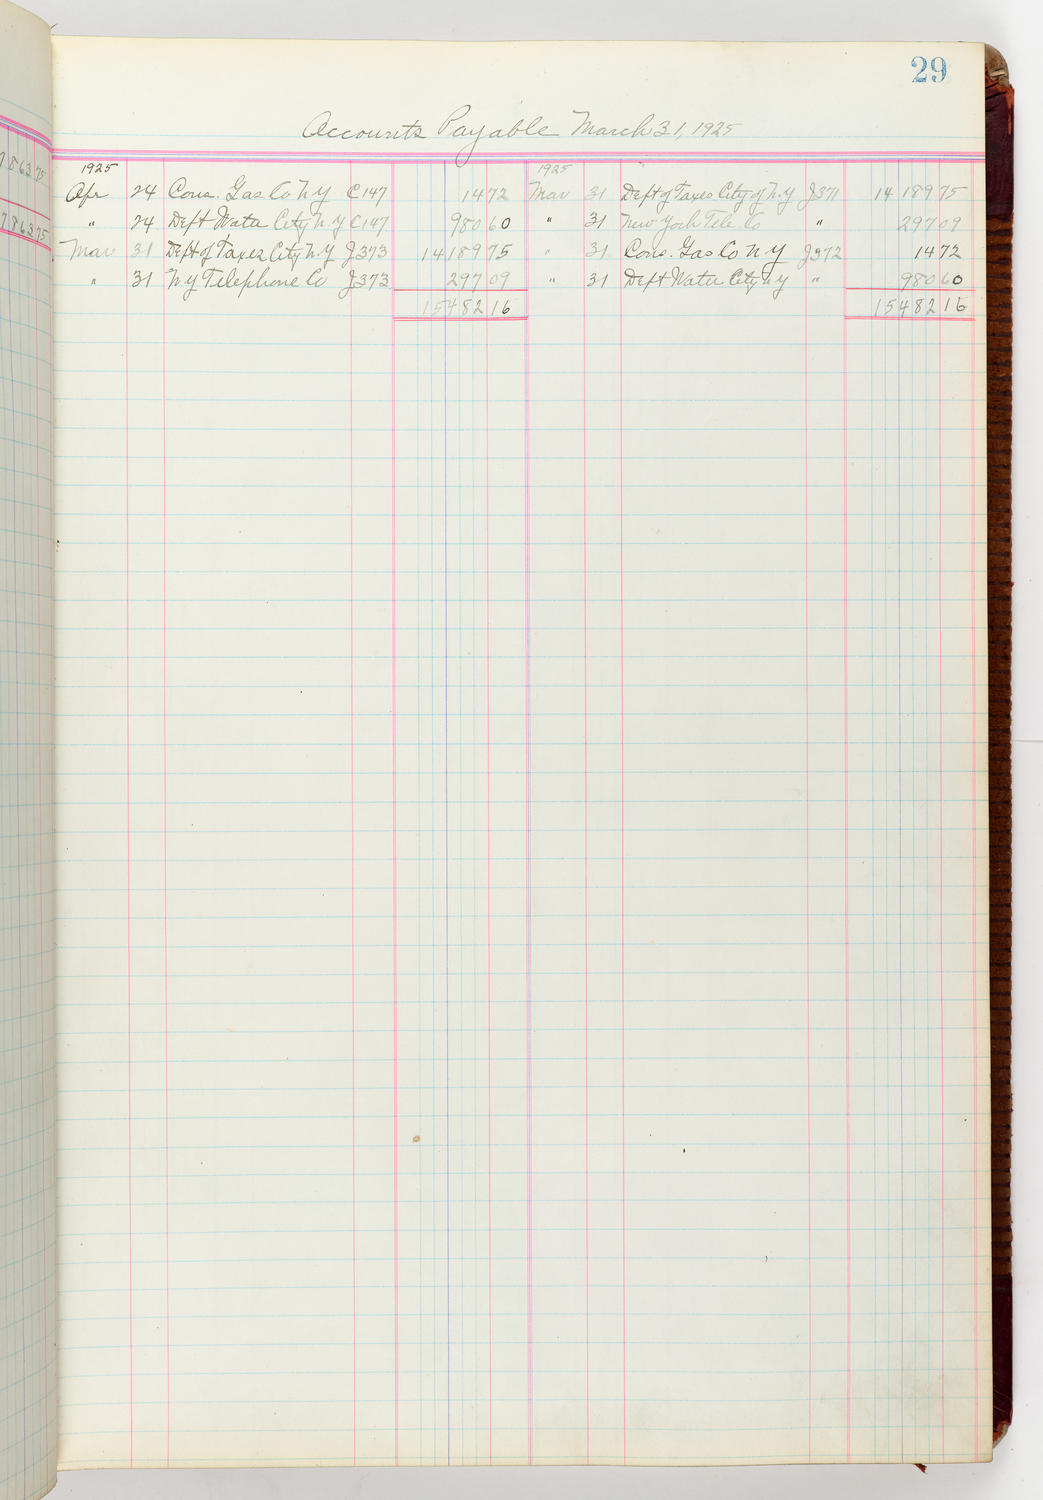 29
Accounts Payable March 31, 1925
1925 1925
Apr 24 Cons. Gas Co N Y C147 14 72 Mar 31 Dept of Taxes City of N.Y J371 14 189 75
" 24 Dept Water City N.Y C147 980 60 " 31 New York Tele. Co " 297 09
Mar 31 Dept of Taxes City N.Y J373 14 189 75 " 31 Cons. Gas Co N Y J372 14 72
" 31 N Y Telephone Co J373 297 09 " 31 Dept Water City N Y " 980 60
15 482 16 15 482 16
7863 75
7863 75